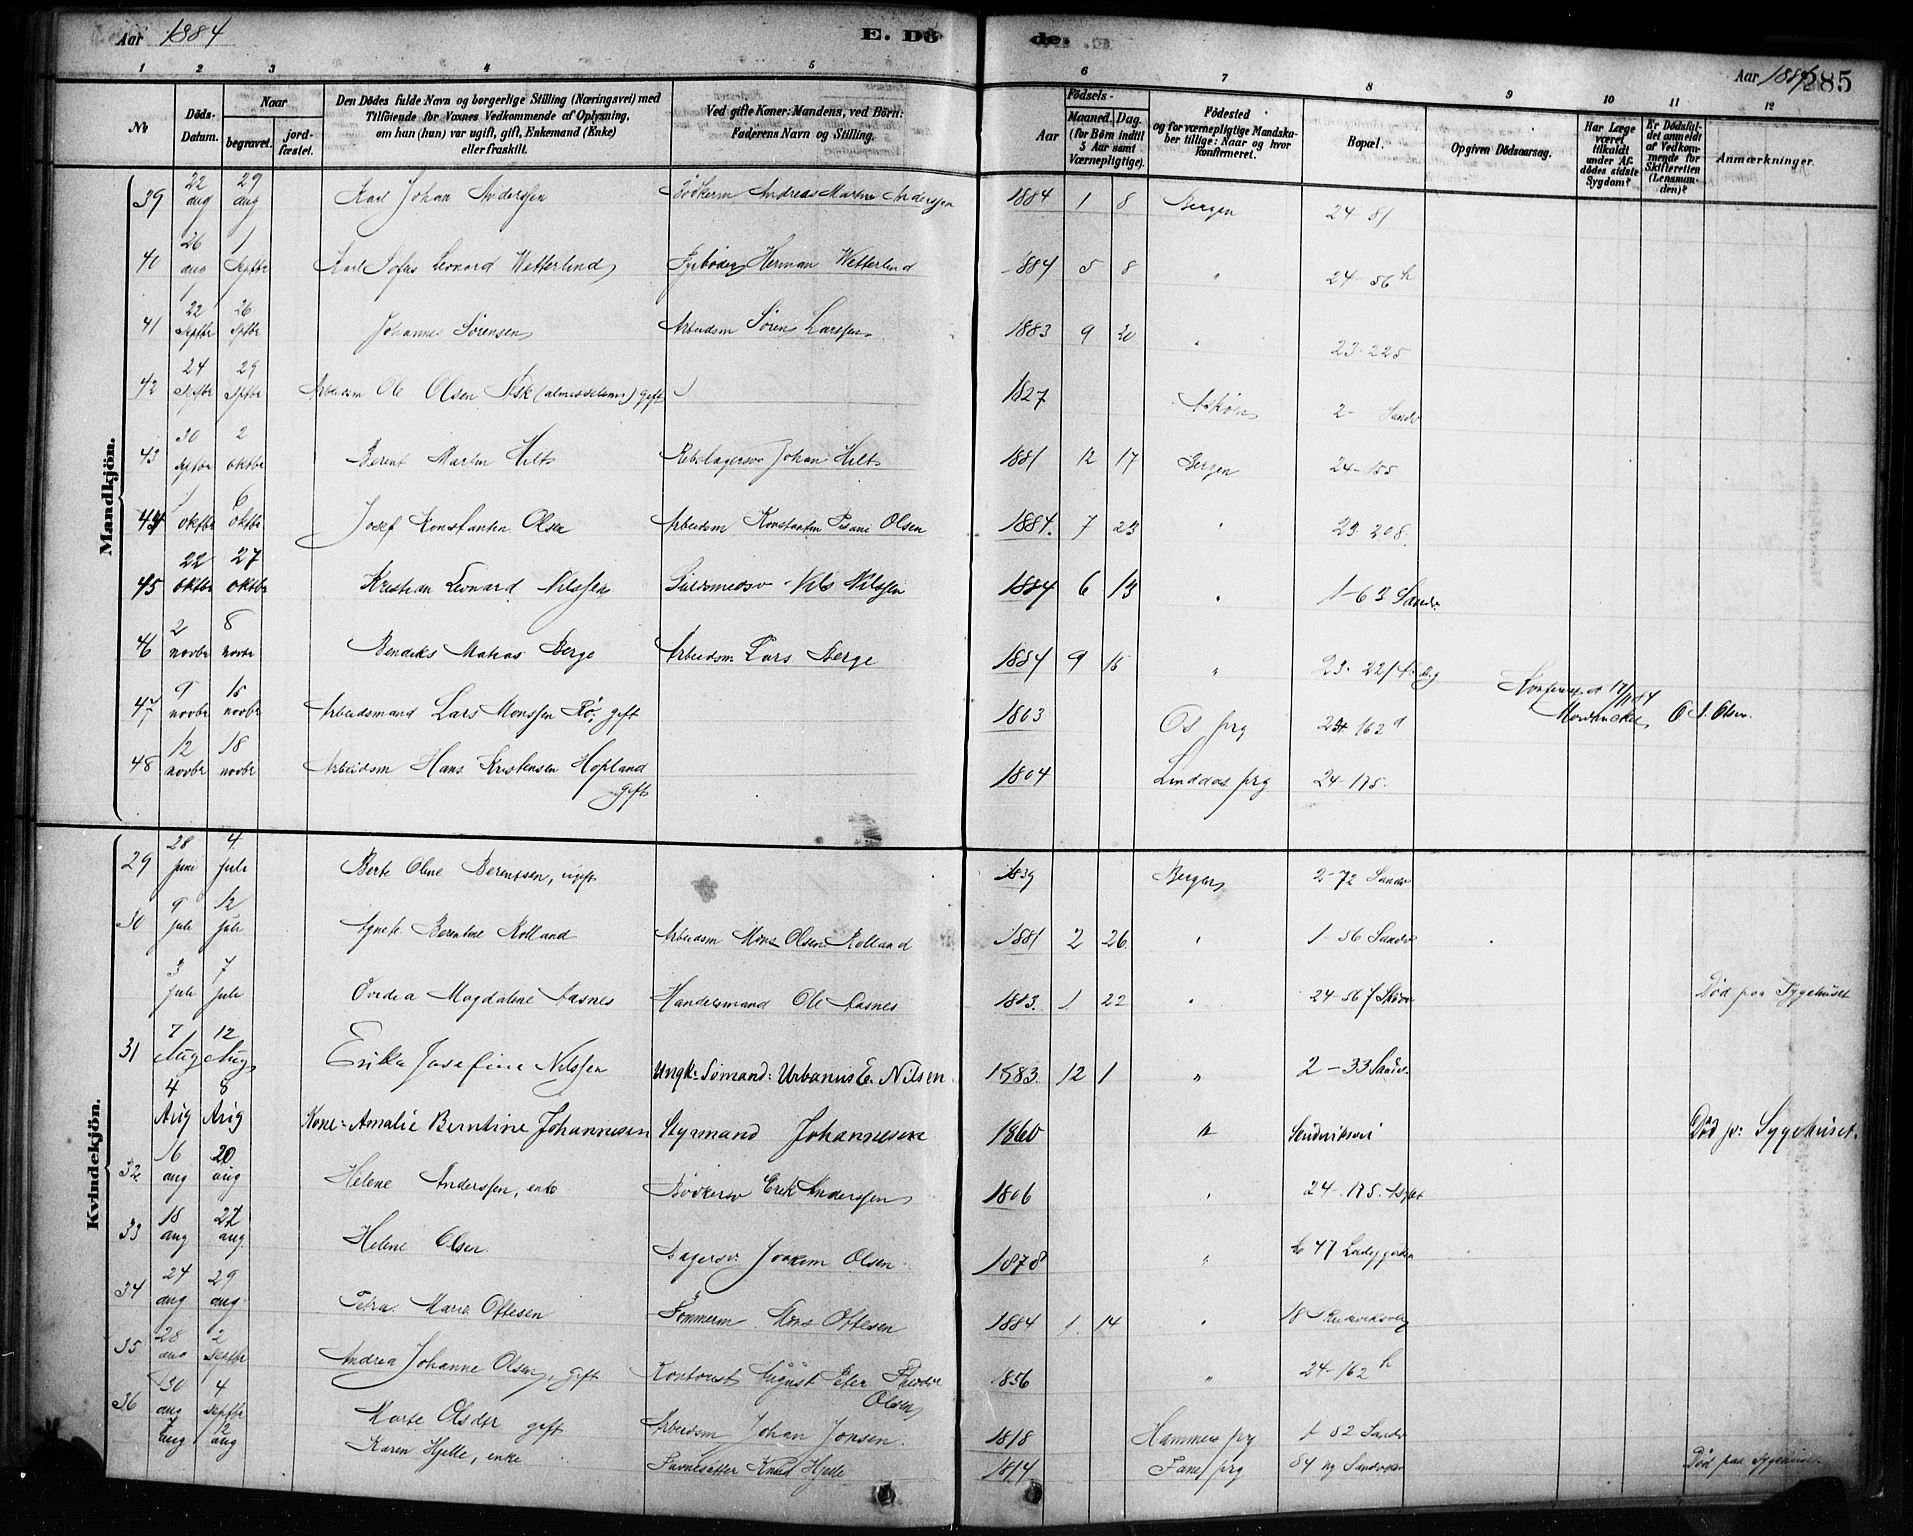 Aar 1884
E. Dö
de.
Aar 1884
285
1 2 3 4 5 6 7 8 9 10 11 12
No
Döds-Datum.
Naar
begravet.
jord-fæstet.
Den Dödes fulde Navn og borgerlige Stilling (Næringsvei) med
Tilföiende for Voxnes Vedkommende af Oplysning,
om han (hun) var ugift, gift, Enkemand (Enke)
eller fraskilt.
Ved gifte Koner: Mandens, ved Börn:
Faderens Navn og Stilling.
Födsels-
Aar
Maaned. Dag.
(for Börn indtil
5 Aar samt
Værnepligtige).
Födested
og for værnepligtige Mandska-
ber tillige: Naar og hvor
konfirmeret.
Bopæl.
Opgiven Dödsaarsag.
Har Læge
været
tilkaldt
under Af-
dödes sidste
Sygdom?
Er Dödsfal-
det anmeldt
af Vedkom-
mende for
Skifteretten
(Lensman-
den)?
Anmærkninger.
Mandkjön.
39 22 aug 29 aug Karl Johan Anderssen Bödkerm Andreas Martin Anderssen 1884 1 8 Bergen 24-81
40 26 aug 1 Septbr Karl Leonard Wetterlund Herman Wetterlund 1884 5 8 " 24-56 h
41 22 Septbr 26 Septbr Johannes Sörensen Arbeidsm Sören Larssen 1883 9 20 " 23-225
42 24 Septbr 29 Septbr Arbeidsm Ole Olsen Ask (almisselem) gift 1827 Asköen 2- Sandv
43 30 Septbr 2 oktbr Berent Martin Hilt Rebslagersv Johan Hilt 1881 12 17 Bergen 24-155
44 1 oktbr 6 oktbr Josef Konstantin Olsen Arbeidsm Konstantin Olsen 1884. 7 23 " 23-208.
45 22 oktbr 27 oktbr Kristian Leonard Nilssen Guldsmedsv Nils Nilssen 1884 6 13 " 1-63 Sandv.
46 2 novbr 8 novbr Bendiks Matias Berge Arbeidsm. Lars Berge 1884 9 15 " 23-221
47 9 novbr 15 novbr Arbeidsmand Lars Monssen Rö. gift 1803 Os prg 24-162 Olsen.
48 12 novbr 18 novbr Arbeidsm Hans Kristensen Hopland gift 1804 Lindaas prg 24-175.
Kvindekjön.
29 28 juni 4 juli Berte Oline Berentsen, ugift 1839 Bergen 2-72 Sandv
30 9 juli 12 juli Agnete Berentine Rolland Arbeidsm Mons Olsen Rolland 1881 2 26 " 1-56 Sandv
3 juli 7 juli Ovedia Magdalene Aasnes Handelsmand Ole Aasnes 1883. 1 22 " 24-56 Död paa Sygehuset
31 7 Aug 12 Aug Erika Josefine Nilssen Ungk: Sömand: Urbanus E. Nilsen. 1883. 12 1 " 2-33 Sandv.
4 Aug 8 Aug Kone: Amalie Berntine Johannesen Styrmand Johannesen 1860 " Sandviksvei Död p: Sygehuset.
32. 16 aug 20 aug Helene Anderssen, enke Bödkersv Erik Anderssen 1806 " 24-175.
33 18 aug 22 aug Helene Olsen Bagersv. Joakim Olsen 1878 " 47
34 24 aug 29 aug. Petra Marie Ottesen Tömmerm Mons Ottesen 1884 1. 14 " 18 Sandviksvei
35 28 aug 2 Septbr Andrea Johanne Olsen, gift Kontorist August Peter Theodor Olsen 1856 " 24-162 h
36 30 aug 4 Septbr Marte Olsdtr gift Arbeidsm Johan Jonsen. 1818 Hammers prg 1 82 Sandv
7 aug 12 aug Karen Hjelle, enke Knud Hjelle 1814 Fane prg 84 Död paa Sygehuset